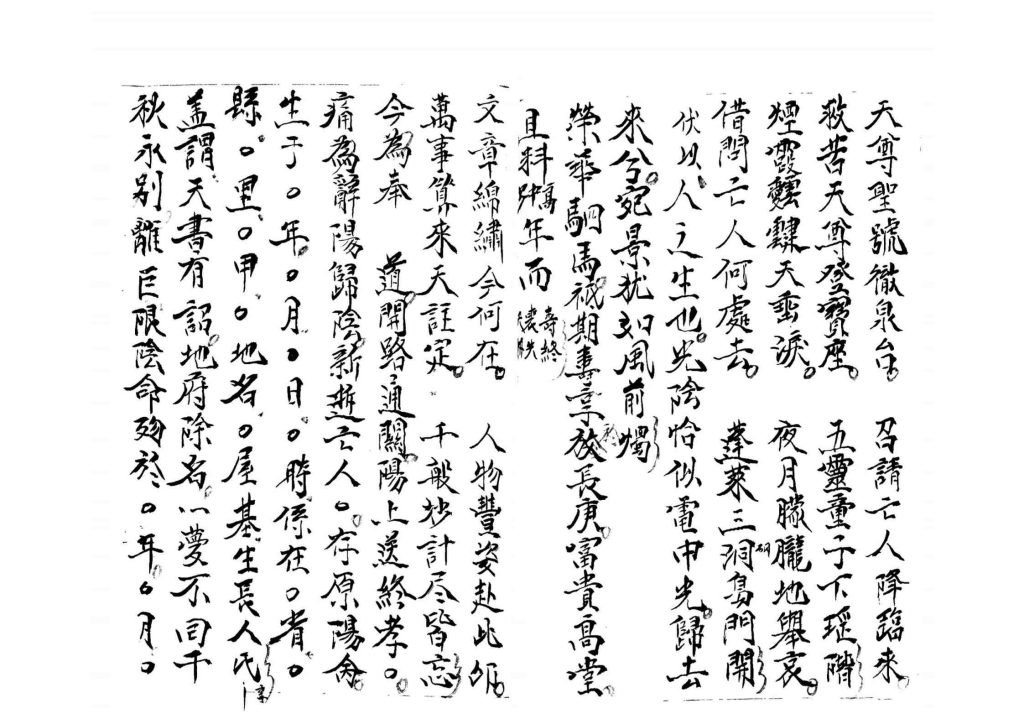 天尊聖號徹泉台。 召請亡人降臨來。
救苦天尊登寶座。 五靈童子下瑶階
煙霞靉靆天垂淚。 夜月朦朧地舉哀。
借問亡人何處去。 蓬萊三洞島門開
伏以、人之生也。光陰恰似電中光。歸去
來兮。宛景犹如風前燭
榮華駟馬祗期壽算於長庚。富貴高堂
且料 年而 壽終
文章綿繡今何在。 人物豐姿赴此
萬事算來天註定。 千般妙計尽皆忘
今為奉 道開路通關。陽上送終孝。○
痛為辭陽歸陰。新逝亡人。○存原陽命
生于○年。○月○日。○時係在○省。○
縣。○里。○甲。○地名。○屋基。生長人氏
盖謂天書有詔。地府除名。一夢不回千
秋永别。離巨限陰命殁於。○年。○月。○